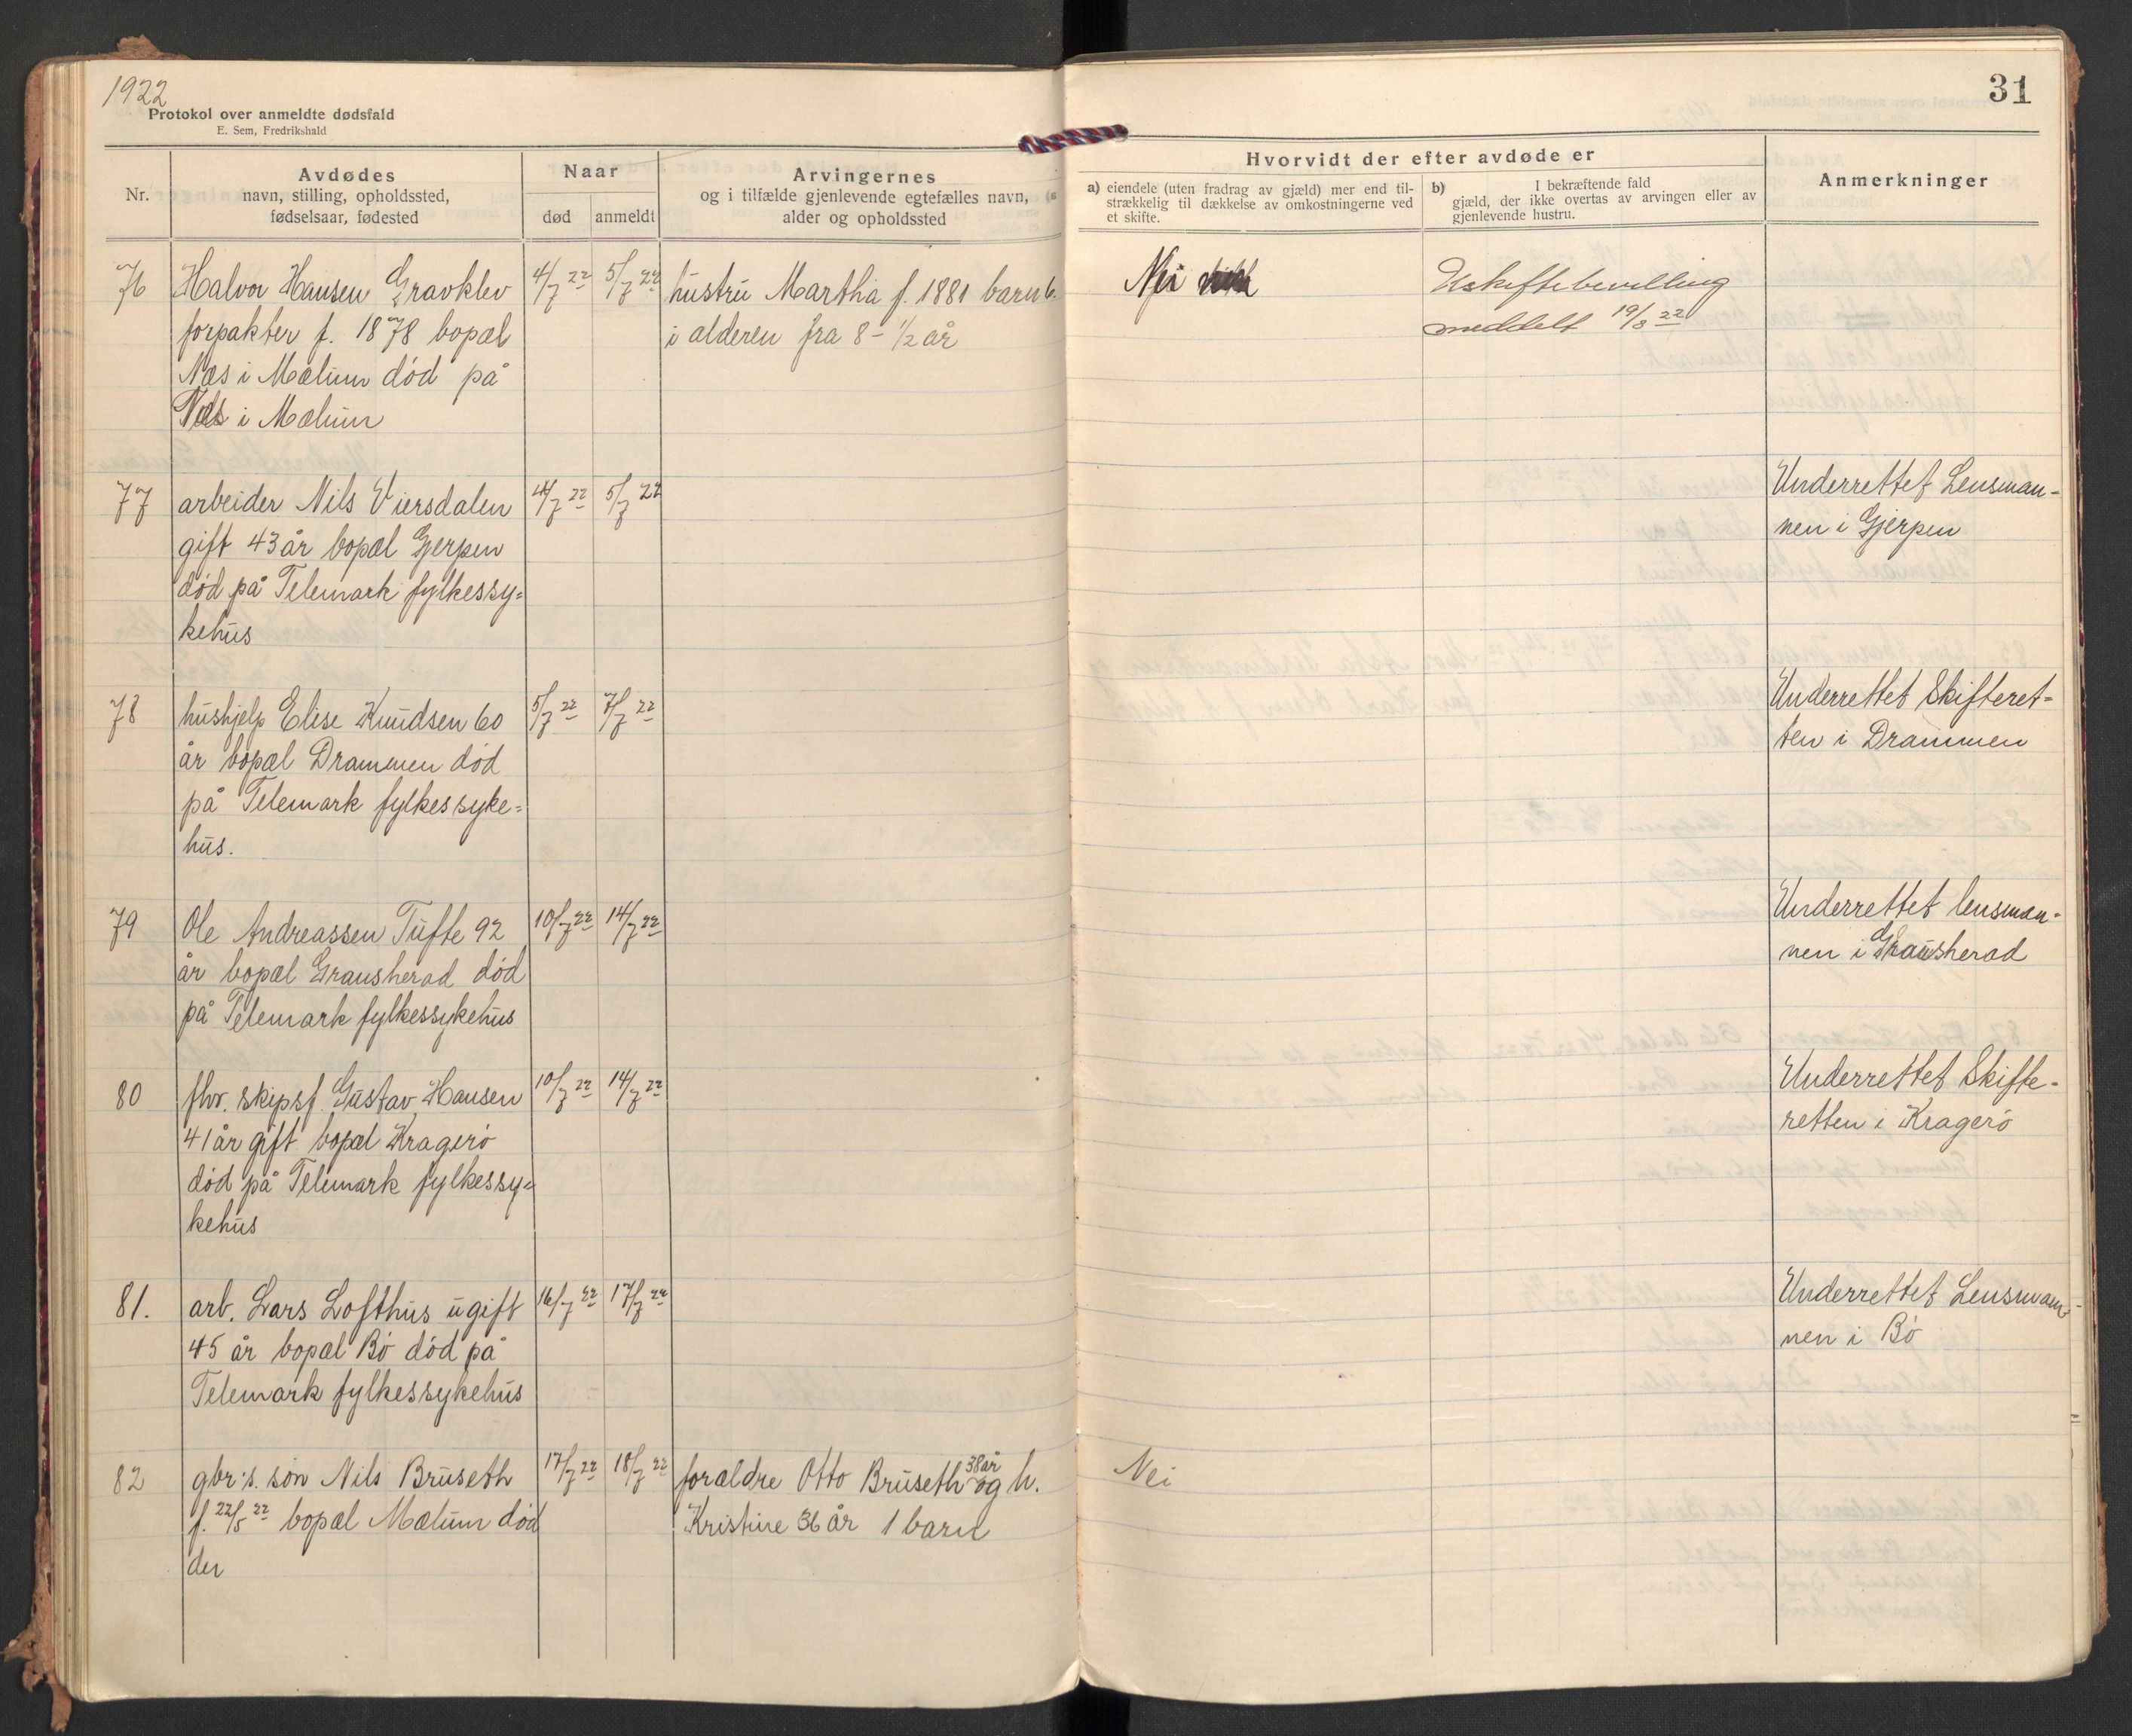 1922
Protokol over anmeldte dødsfald
E. Sem, Fredrikshald
31
Nr.
Avdødes
navn, stilling, opholdssted,
fødselsaar, fødested
Naar
død
anmeldt
Arvingernes
og i tilfælde gjenlevende egtefælles navn,
alder og opholdssted
Hvorvidt der efter avdøde er
a) eiendele (uten fradrag av gjæld) mer end til-
strækkelig til dækkelse av omkostningerne ved
et skifte.
b) I bekræftende fald
gjæld, der ikke overtas av arvingen eller av
gjenlevende hustru.
Anmerkninger
76 Halvor Hansen Gravklev 4/7 22 5/7 22 hustru Martha f. 1881 barn 6. Nei Uskiftebevilling
forpakter f. 1878 bopæl i alderen fra 8 - 1/2 år meddelt 19/8 22
Næs i Mælum død på
Næs i Mælum
77 arbeider Nils Viersdalen 4/7 22 5/7 22 Underrettet Lensman-
gift 43 år bopæl Gjerpen nen i Gjerpen
død på Telemark fylkessy=
kehus
78 hushjelp Elise Knudsen 60 5/7 22 7/7 22 Underrettet Skifteret-
år bopæl Drammen død ten i Drammen
på Telemark fylkessyke=
hus.
79 Ole Andreassen Tufte 92 10/7 22 14/7 22 Underrettet lensman-
år bopæl Gransherad død nen i Gransherad
på Telemark fylkessykehus
80 fhv. skipsf. Gustav Hansen 10/7 22 14/7 22 Underrettet Skifte-
41 år gift bopæl Kragerö retten i Kragerö
død på Telemark fylkessy=
kehus
81. arb. Lars Lofthus ugift 16/7 22 17/7 22 Underrettet Lensman-
45 år bopæl Bö död på nen i Bö
Telemark fylkessykehus
82 gbr.s. sön Nils Bruseth 17/7 22 18/7 22 forældre Otto Bruseth 38 år og h. Nei
f. 22/5 22 bopæl Mælum död Kristine 36 år 1 barn
der